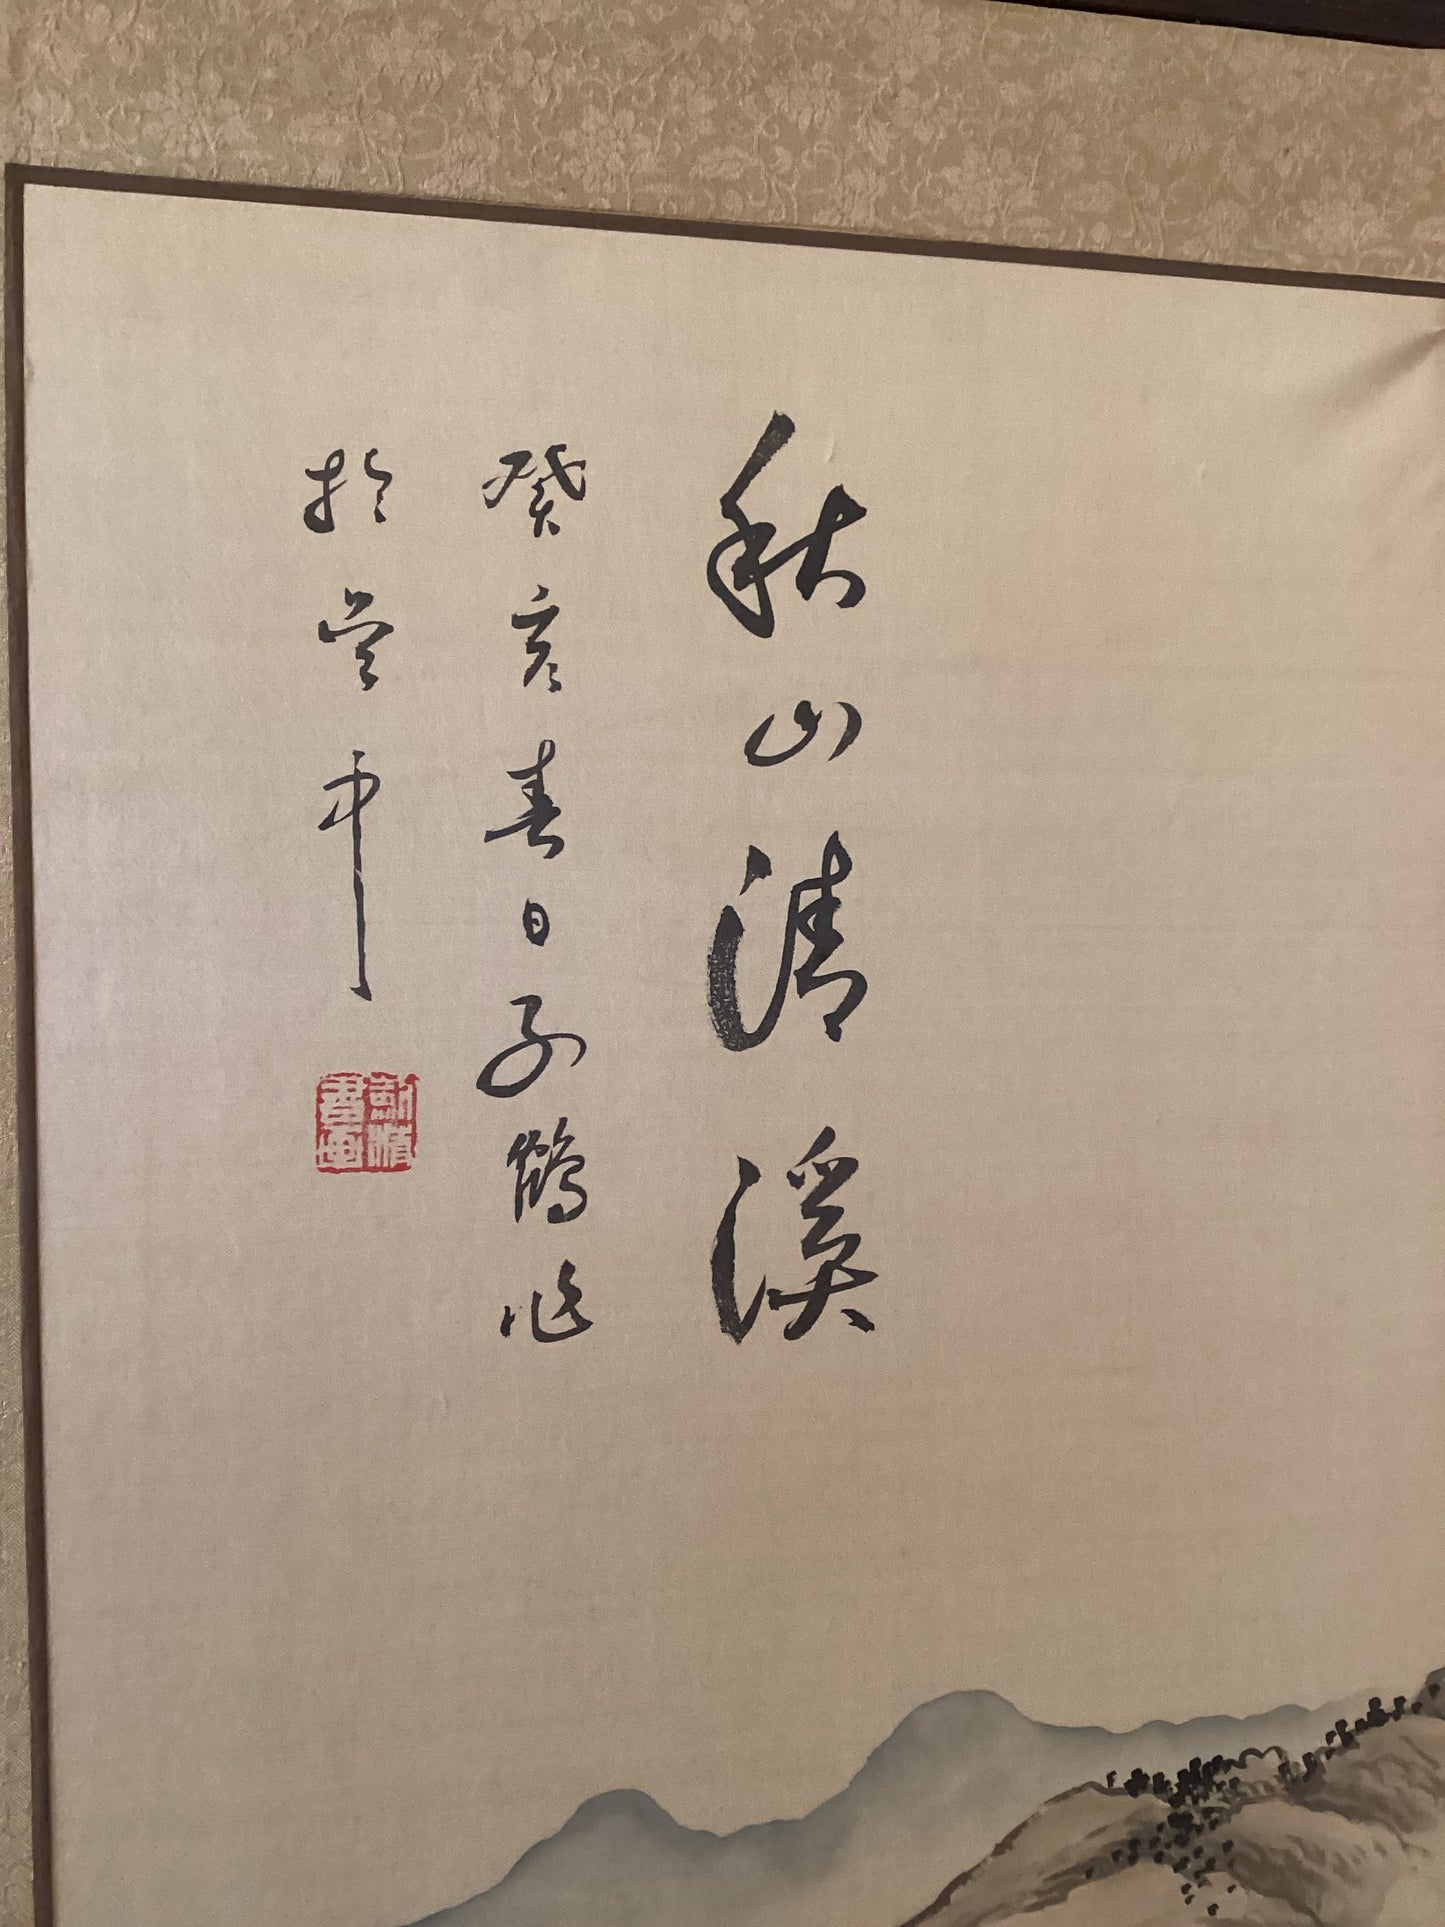 秋山清溪
癸亥春日子鶴作
於
書畫